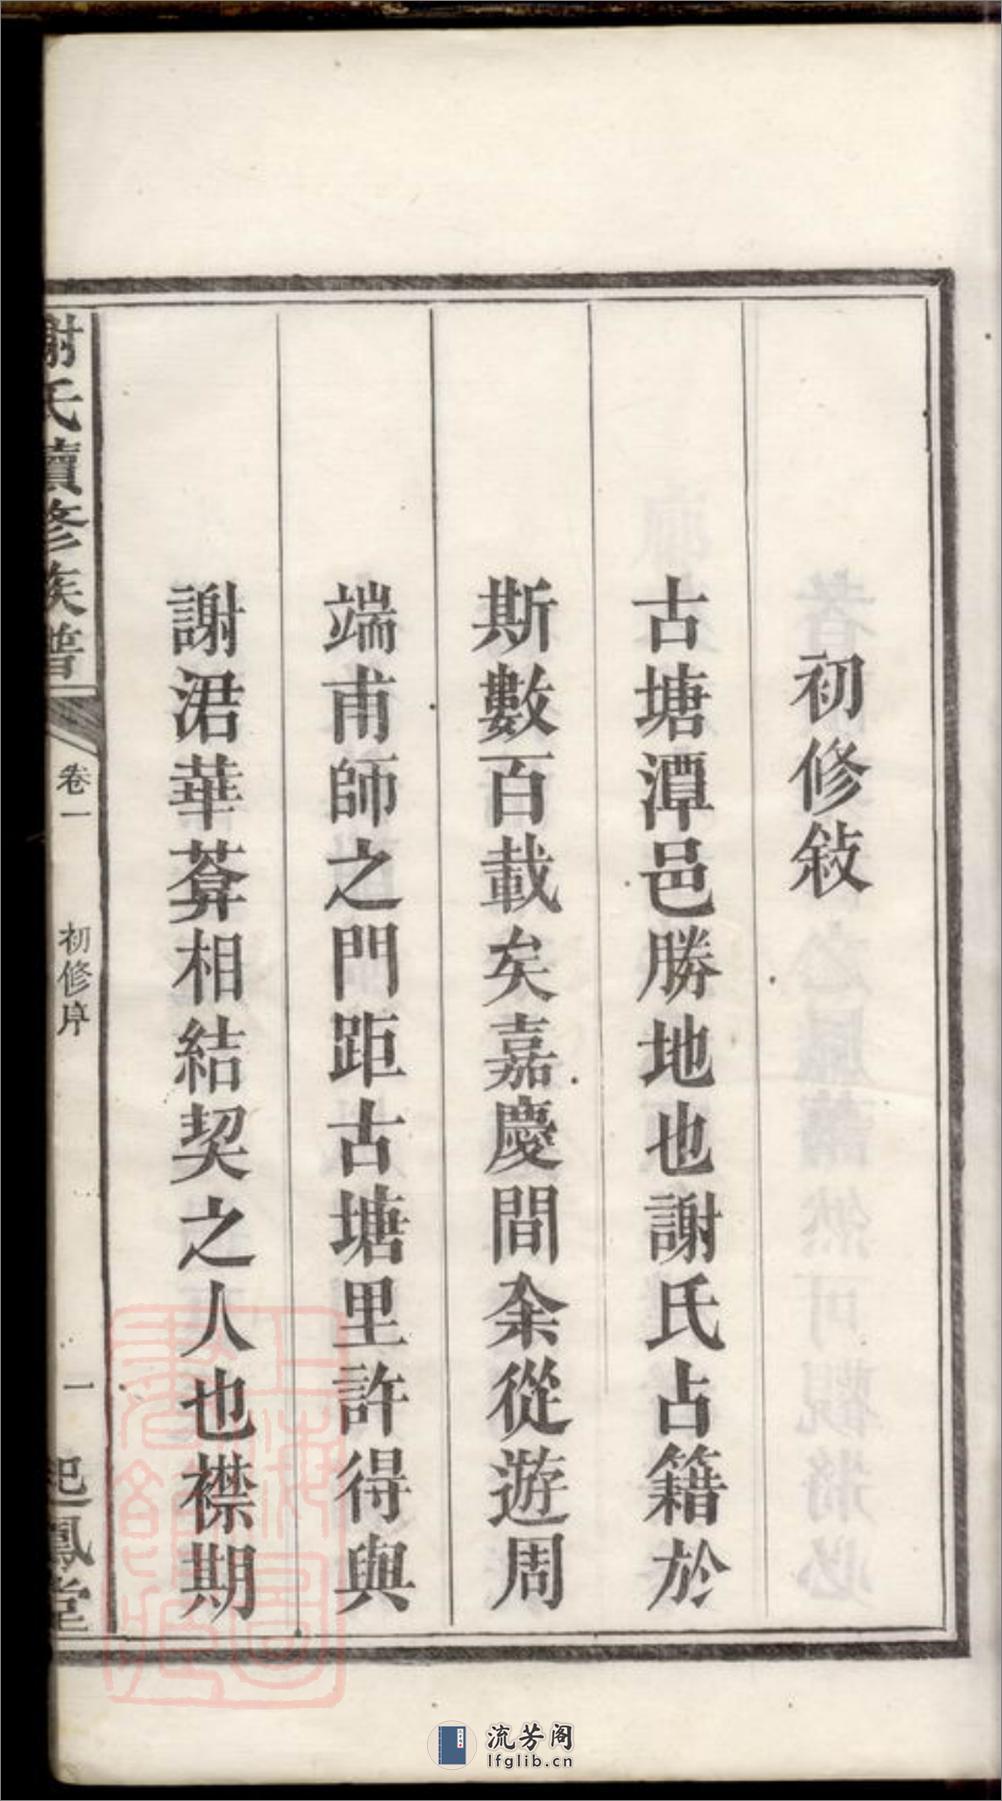 初修敍
古塘潭邑勝地也謝氏占籍於
斯數百載矣嘉慶間余從遊周
端甫師之門距古塘里許得與
謝涒華葊相結契之人也襟期
謝氏續修族譜
卷一
初修序
一
起鳳堂
流芳阁
lfglib.cn